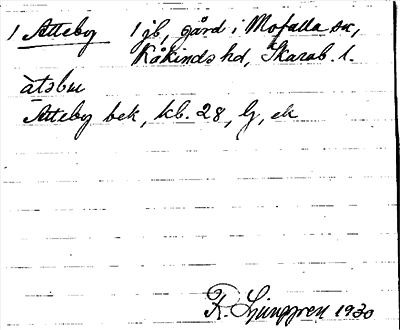 1 Atteby 1 jb, gård i Mofalla sn,
Kåkinds hd, Skarab. l.
àtəbu
Atteby bek, kb. 28, lj, ek
R. Ljunggren 1930